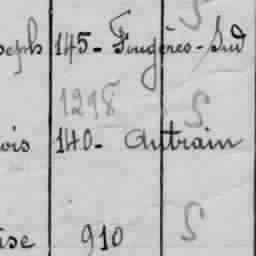 S
seph 145- Fougères-Sud
1298 S
ois 140- Antrain
ise 910 S